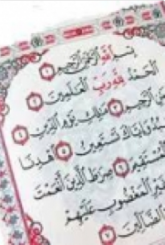 بِسْمِ اللَّهِ الرَّحْمَٰنِ الرَّحِيمِ
الْحَمْدُ لِلَّهِ رَبِّ الْعَالَمِينَ
الرَّحْمَٰنِ الرَّحِيمِ مَالِكِ يَوْمِ الدِّينِ
نَعْبُدُ وَإِيَّاكَ نَسْتَعِينُ اهْدِنَا
الْمُسْتَقِيمَ صِرَاطَ الَّذِينَ أَنْعَمْتَ
غَيْرِ الْمَغْضُوبِ عَلَيْهِمْ
الضَّالِّينَ